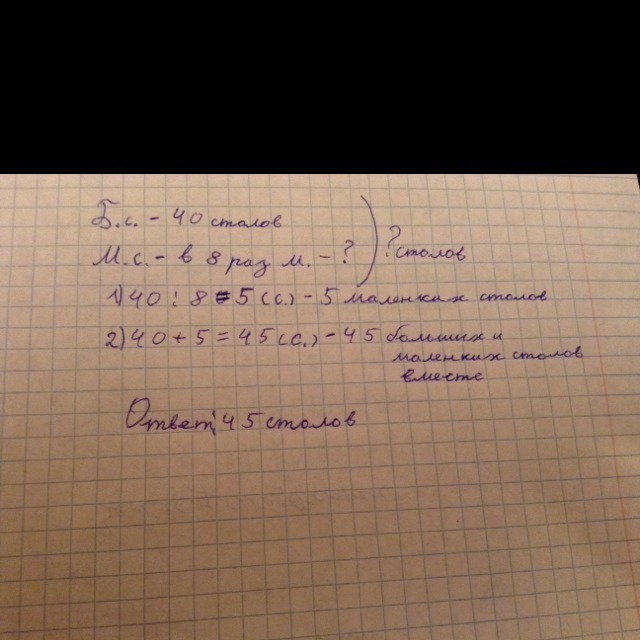 Б.с. - 40 столов
М.с. - в 8 раз м. - ? ) ? столов
1) 40 : 8 = 5 (с.) - 5 маленких столов
2) 40 + 5 = 45 (с.) - 45 больших и
маленких столов
вместе
Ответ: 45 столов